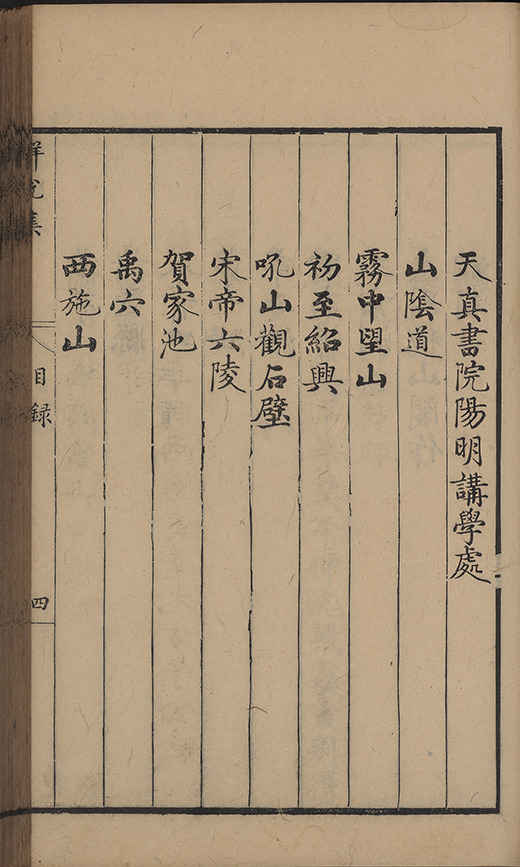 天真書院陽明講學處
山陰道
霧中望山
初至紹興
吼山觀石壁
宋帝六陵
賀家池
禹穴
西施山
解脫集
目録
四